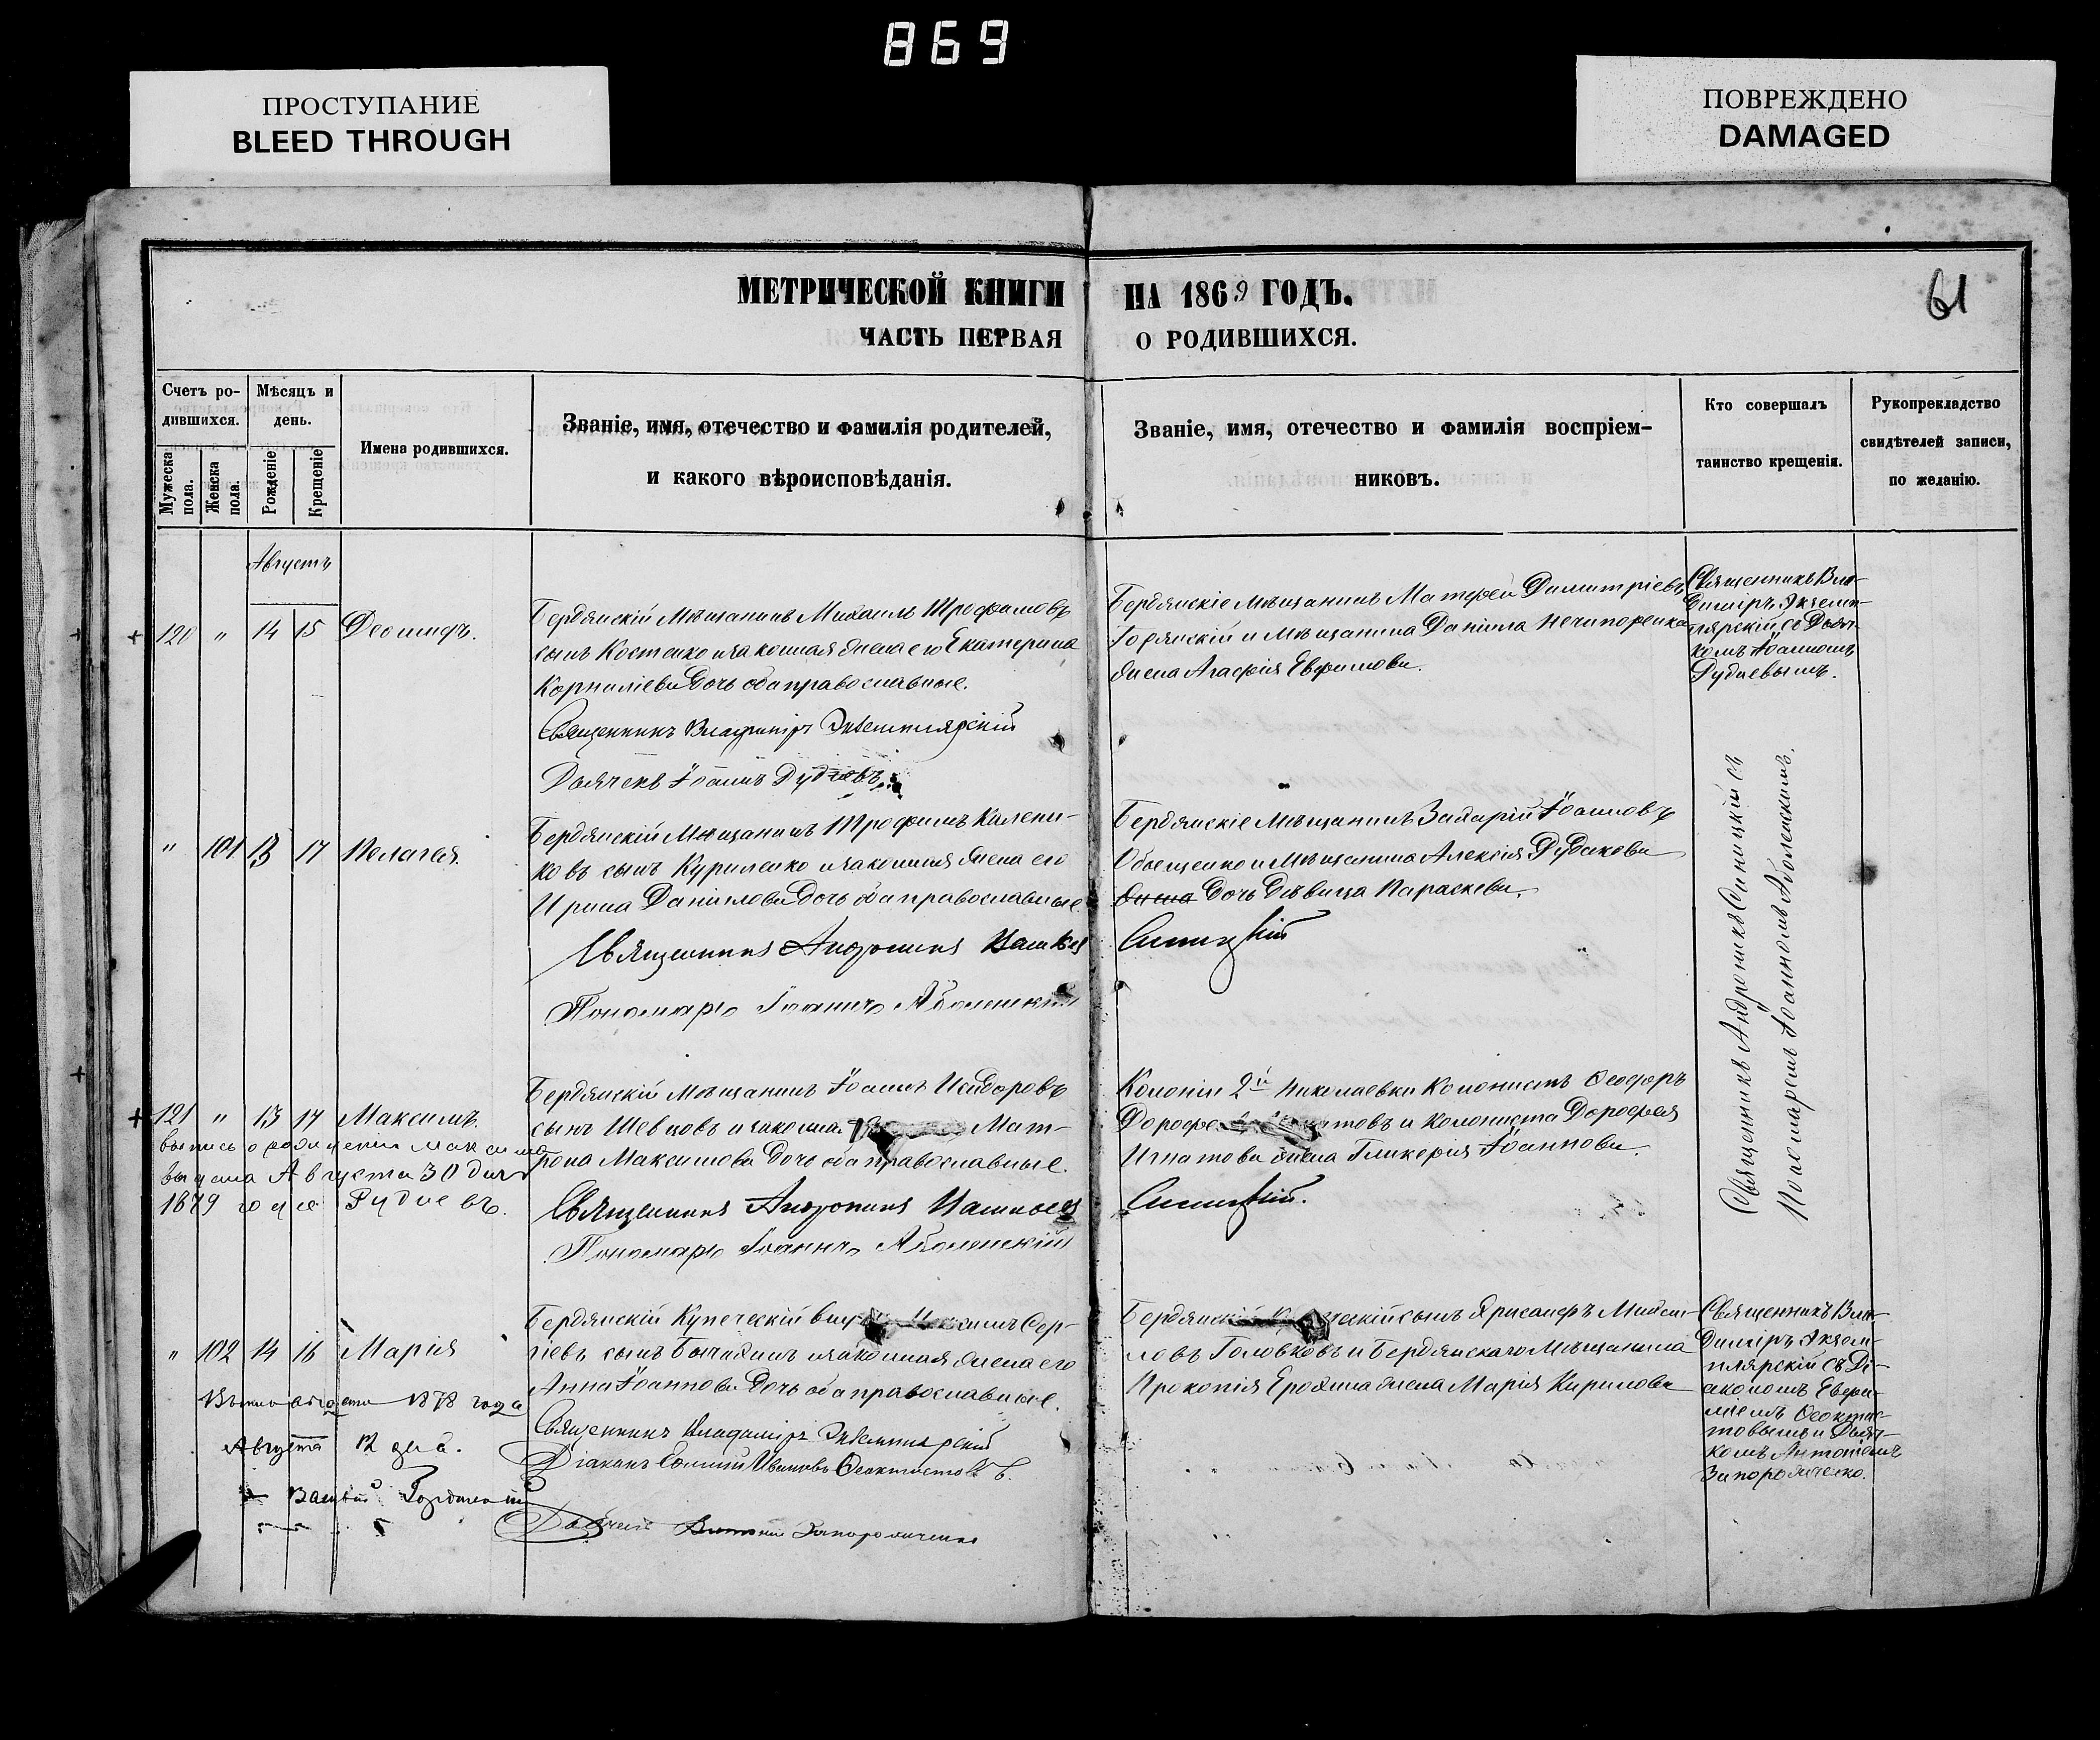 869
ПРОСТУПАНИЕ
BLEED THROUGH
ПОВРЕЖДЕНО
DAMAGED
МЕТРИЧЕСКОЙ КНИГИ НА 1869 ГОДЪ.
61
ЧАСТЬ ПЕРВАЯ О РОДИВШИХСЯ.
Счетъ ро-
дившихся.
Мужеска
пола.
Женска
пола.
Мѣсяцъ и
день.
Рожденіе
Крещеніе
Имена родившихся.
Званіе, имя, отечество и фамилія родителей,
и какого вѣроисповѣданія.
Званіе, имя, отечество и фамилія воспріем-
никовъ.
Кто совершалъ
таинство крещенія.
Рукоприкладство
свидѣтелей записи,
по желанію.
Августъ
120 " 14 15 Леонидъ.
Бердянскій Мѣщанинъ Михаилъ Трофимовъ
сынъ Костенко и законная жена его Екатерина
Корнилiева дочь оба православные.
Священникъ Владиміръ Экземплярскій
Дьячекъ Іоаннъ Рудневъ
Бердянскіе Мѣщанинъ Матфей Димитріевъ
и Мѣщанина Даніила Нечипоренка
жена Агафія Ефимова.
Священникъ Вла-
диміръ Экзем-
плярскій съ Дьяч-
комъ Іоанномъ
Рудневымъ.
" 101 13 17 Пелагея.
Бердянскій Мѣщанинъ Трофимъ Калени-
ковъ сынъ Куриленко и законная жена его
Ирина Даніилова дочь оба православные.
Священникъ Андроникъ
Синицкій
Пономарь Іоаннъ Аболенскій
Бердянскіе Мѣщанинъ Захарій Іоанновъ
и Мѣщанина Алексія
жена дочь Дѣвица Параскева.
Священникъ Андроникъ Синицкій съ
Пономаремъ Іоанномъ Аболенскимъ.
121 " 13 17 Максимъ.
Выпись о рожденіи Максима
выдана Августа 30 дня
1879 года Рудневъ.
Бердянскій Мѣщанинъ Іоаннъ Исидоровъ
сынъ Шевцовъ и законная Мат-
рона Максимова дочь оба православные.
Священникъ Андроникъ
Синицкій.
Пономарь Іоаннъ Аболенскій
Колоніи 2й Николаевки Колонистъ Ѳеодоръ
и колониста Дорофея
Игнатова жена Гликерія Іоаннова.
" 102 14 16 Марія
августа 1878 года
Августа 12 дня.
Бердянскій Купеческій Сер-
гіевъ сынъ и законная жена его
Анна Іоаннова дочь оба православные.
Священникъ Владиміръ Экземплярскій
Діаконъ Ивановъ Ѳеоктистовъ.
Дьячекъ Антоній Запорожченко
Бердянскій сынъ Михаи-
ловъ Головковъ и Бердянскаго Мѣщанина
Прокопія Ерохина жена Марія Кирилова
Священникъ Вла-
диміръ Экзем-
плярскій съ Ді-
акономъ Евфи-
міемъ Ѳеоктис-
товымъ и Дьяч-
комъ Антоніемъ
Запорожченко.